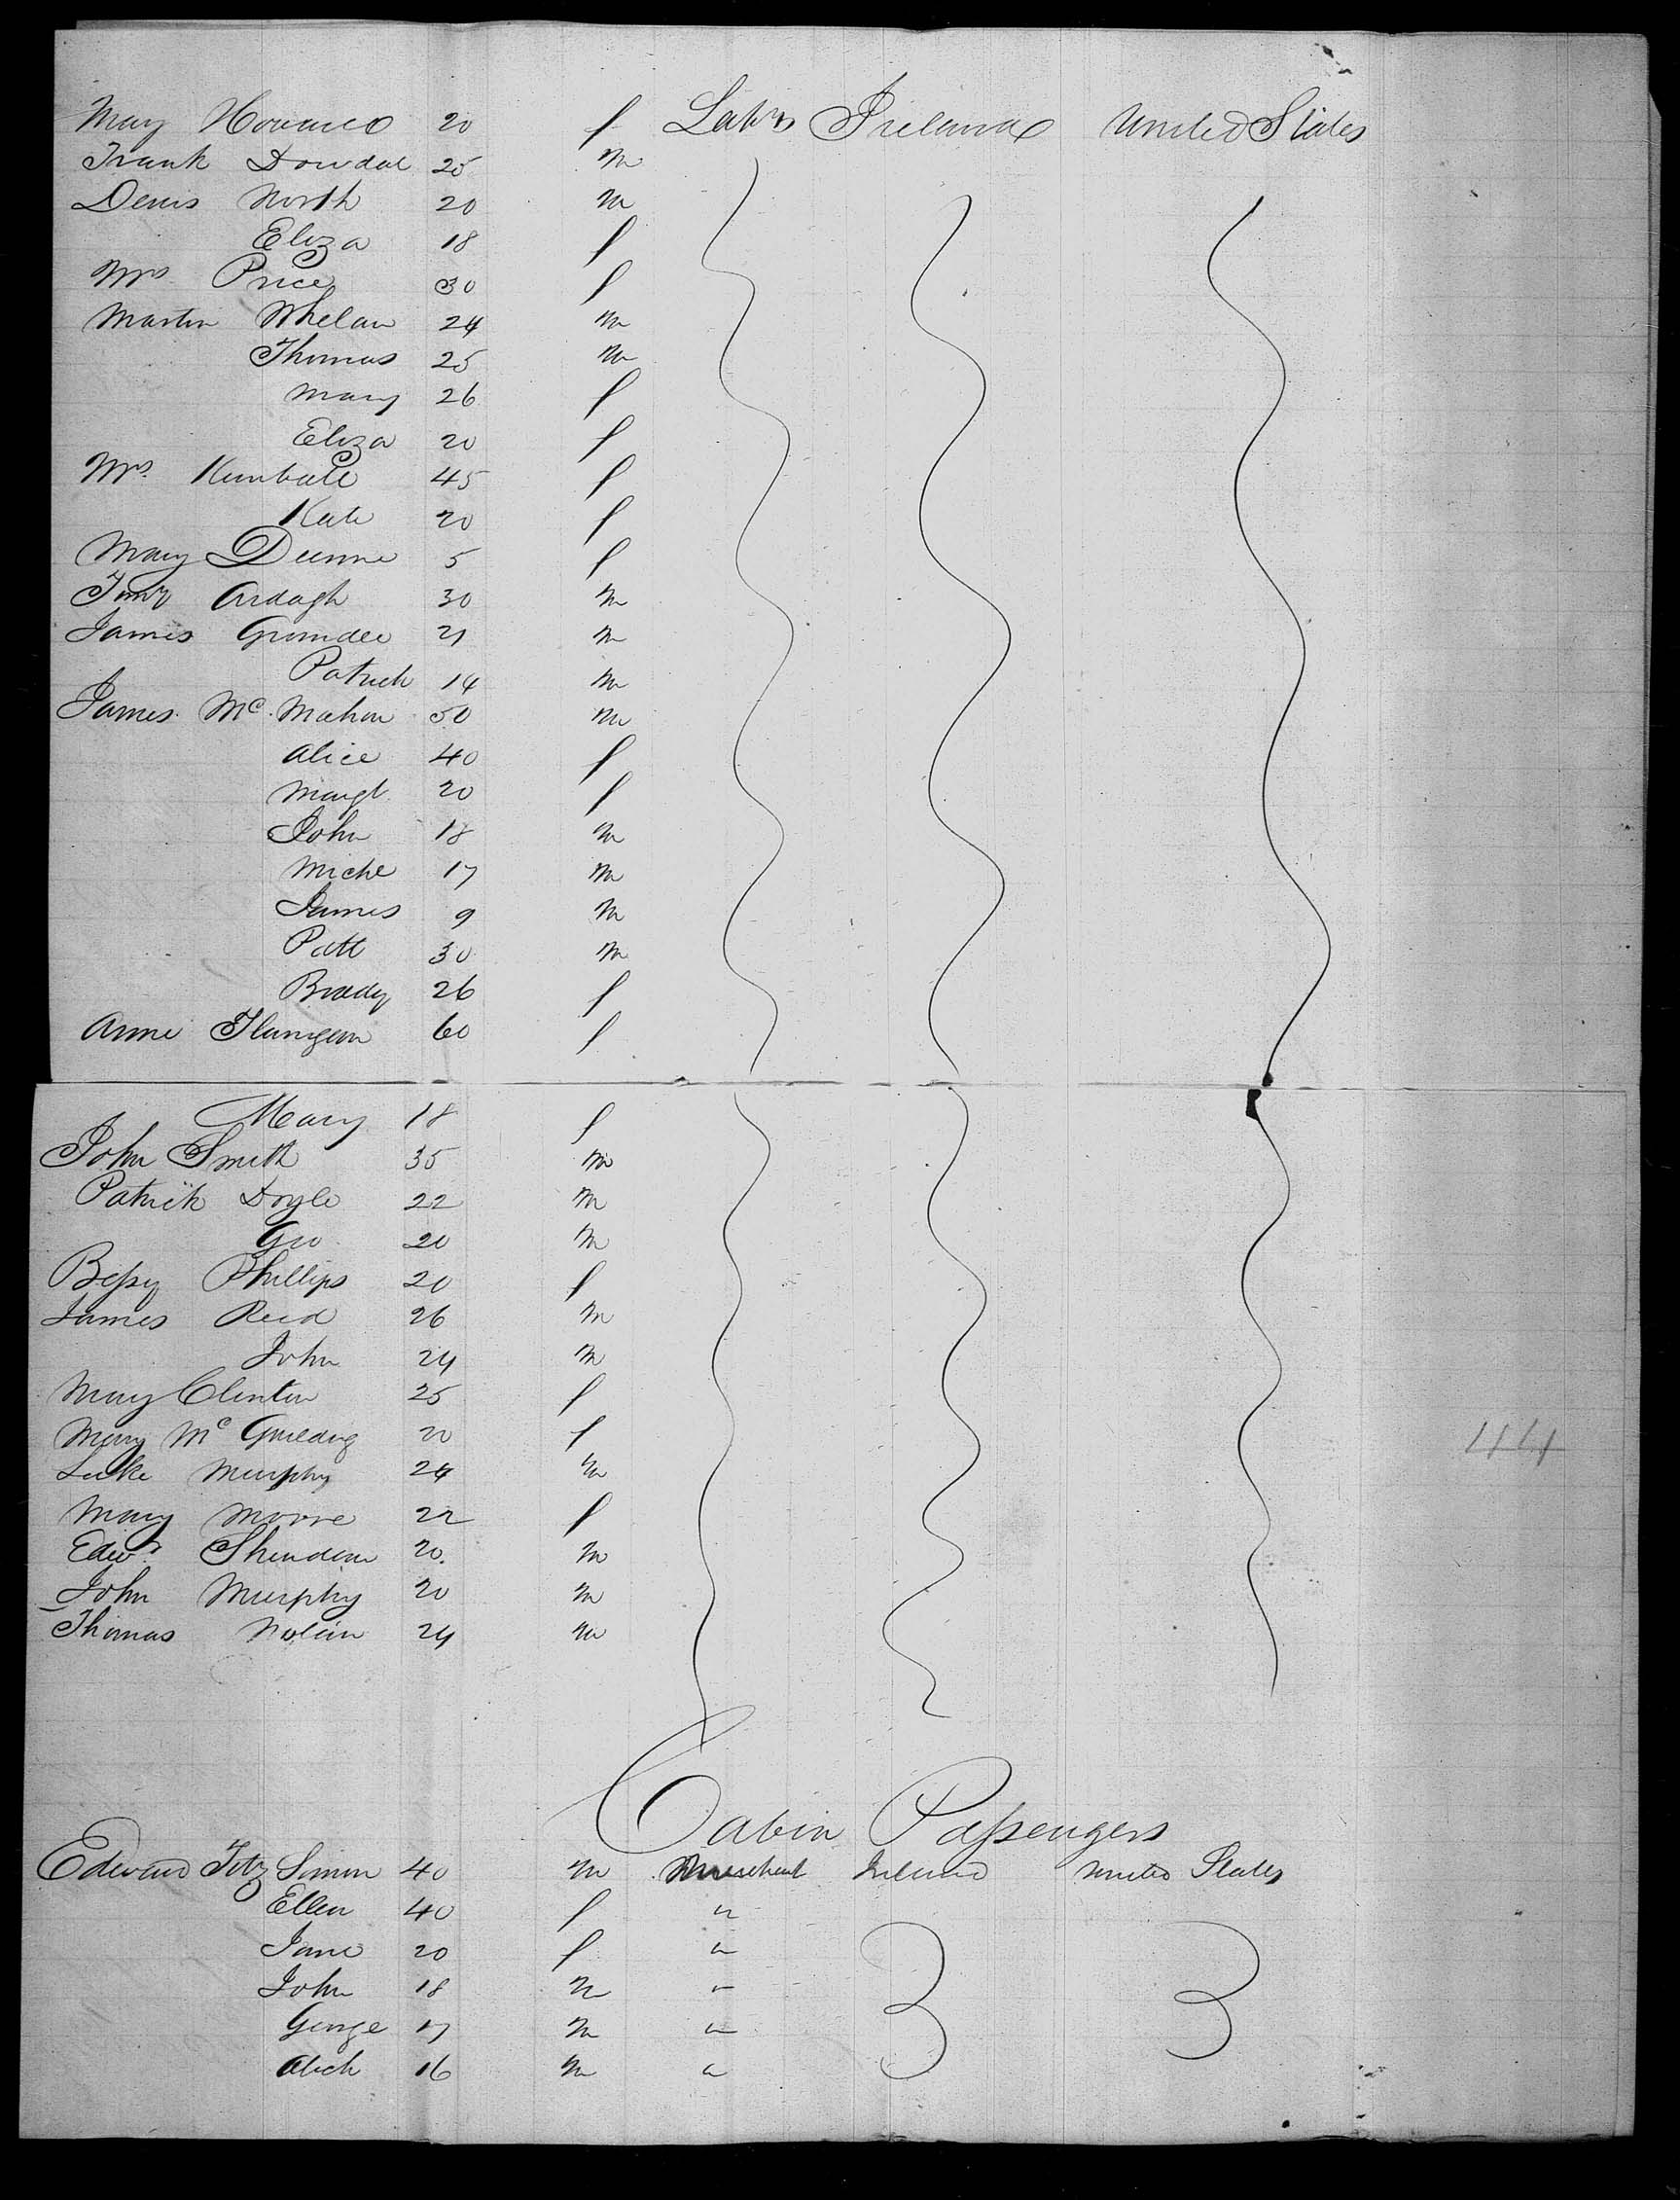 Mary Howard 20 f Labrs Ireland United States
Frank Dowdal 25 m
Denis North 20 m
Eliza 18 f
Mrs Price 30 f
Martin Whelan 24 m
Thomas 25 m
Mary 26 f
Eliza 20 f
Mrs Kimball 45 f
Kate 20 f
Mary Dunne 5 f
Ardagh 30 m
James 21 m
Patrick 14 m
James Mc Mahon 50 m
Alice 40 f
Margt 20 f
John 18 m
Michl 17 m
James 9 m
Patt 30 m
Briddy 26 f
Anne Flanigan 60 f
Mary 18 f
John Smith 35 m
Patrick Doyle 22 m
Geo 20 m
Bessy Phillips 20 f
James Reid 26 m
John 24 m
Mary Clinton 25 f
Mary Mc 20 f
Luke Murphy 24 m
Mary Moore 22 f
Edwd Sheridan 20. m
John Murphy 20 m
Thomas Nolan 24 m
Cabin Passengers
Edward Fitz Simon 40 m Merchant Ireland United States
Ellen 40 f "
Jane 20 f "
John 18 m "
George 17 m "
Alick 16 m "